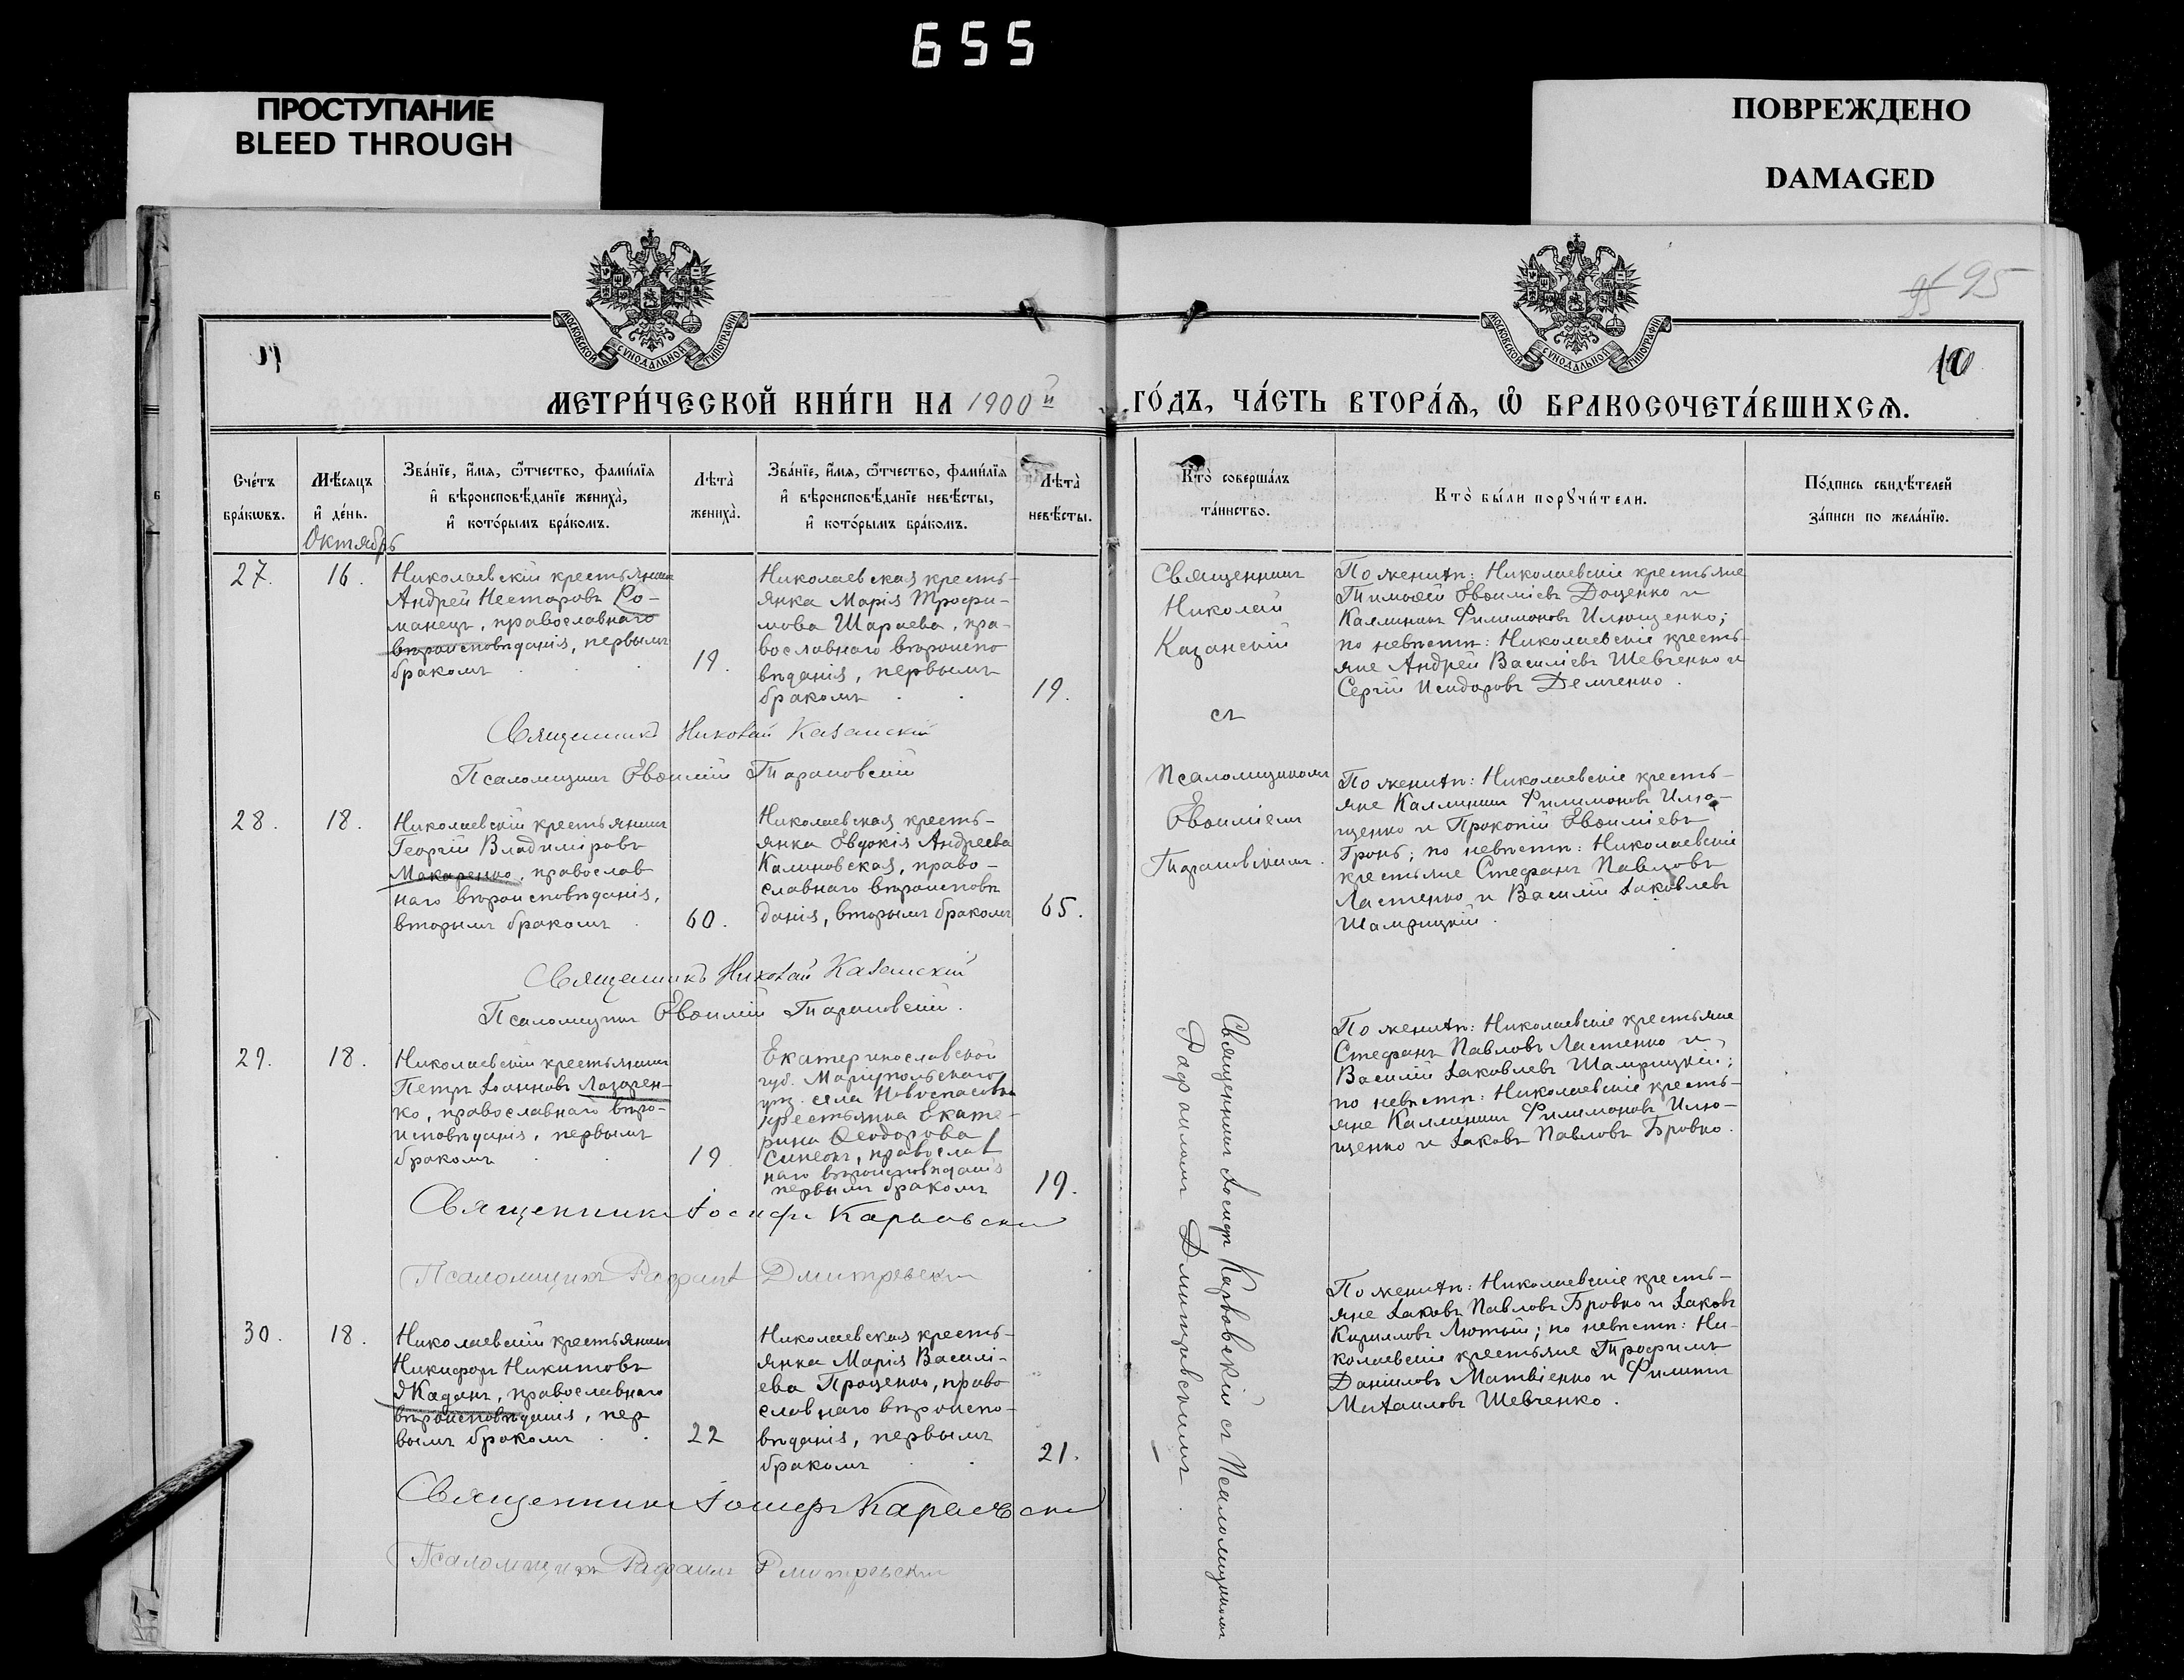 655
ПРОСТУПАНИЕ
BLEED THROUGH
ПОВРЕЖДЕНО
DAMAGED
МОСКОВСКОЙ СѴНОДАЛЬНОЙ ТИПОГРАФІИ
МОСКОВСКОЙ СѴНОДАЛЬНОЙ ТИПОГРАФІИ
95 95
10
МЕТРИ́ЧЕСКОЙ КНИ́ГИ НА 1900й ГО́ДЪ, ЧА́СТЬ ВТОРА́Ѧ, Ѽ БРАКОСОЧЕТА́ВШИХСѦ.
Сче́тъ
бра́кѡвъ.
Мѣ́сяцъ
и҆ де́нь.
Октябрь
Зва́нїе, и҆́мѧ, ѻ҆́тчество, фами́лїѧ
и҆ вѣроисповѣ́данїе жениха̀,
и҆ кото́рымъ бра́комъ.
Лѣта̀
жениха̀.
Зва́нїе, и҆́мѧ, ѻ҆́тчество, фами́лїѧ
и҆ вѣроисповѣ́данїе невѣ́сты,
и҆ кото́рымъ бра́комъ.
Лѣта̀
невѣ́сты.
Кто̀ соверша́лъ
та́инство.
Кто̀ бы́ли порꙋчи́тели.
По́дпись свидѣ́телей
за́писи по жела́нїю.
27.
16.
Николаевскій крестьянинъ
Андрей Несторовъ Ро-
манецъ, православнаго
вѣроисповѣданія, первымъ
бракомъ
19.
Николаевская кресть-
янка Марія Трофи-
мова Шараева, пра-
вославнаго вѣроиспо
вѣданія, первымъ
бракомъ
19.
Священникъ
Николай
Казанскій
съ
Псаломщикомъ
Евѳиміемъ
Тарановскимъ.
По женихѣ: Николаевскіе крестьяне
Тимоѳей Евѳиміевъ Доценко и
Каллиникъ Филимоновъ Илющенко;
по невѣстѣ: Николаевскіе кресть-
яне Андрей Василіевъ Шевченко и
Сергій Исидоровъ Демченко.
Священникъ Николай Казанскій
Псаломщикъ Евѳимій Тарановскій
28.
18.
Николаевскій крестьянинъ
Георгій Владиміровъ
Макаренко, православ
наго вѣроисповѣданія,
вторымъ бракомъ
60.
Николаевская кресть-
янка Евдокія Андреева
Калиновская, право-
славнаго вѣроисповѣ
данія, вторымъ бракомъ
65.
По женихѣ: Николаевскіе кресть-
яне Каллиникъ Филимоновъ Илю-
щенко и Прокопій Евѳиміевъ
Гронь; по невѣстѣ: Николаевскіе
крестьяне Стефанъ Павловъ
Ластенко и Василій Іаковлевъ
Шамрицкій.
Священникъ Николай Казанскій
Псаломщикъ Евѳимій Тарановскій.
29.
18.
Николаевскій крестьянинъ
Петръ Іоанновъ Лазарен-
ко, православнаго вѣро-
исповѣданія, первымъ
бракомъ
19
Екатеринославской
губ. Маріупольскаго
уѣз. села Новоспасовки
крестьянка Екате-
рина Ѳеодорова
Синеокъ, православ
наго вѣроисповѣданія
первымъ бракомъ
19.
Священникъ Іосифъ Карповскій съ Псаломщикомъ
Рафаиломъ Дмитревскимъ.
По женихѣ: Николаевскіе крестьяне
Стефанъ Павловъ Ластенко и
Василій Іаковлевъ Шамрицкій;
по невѣстѣ: Николаевскіе кресть-
яне Каллиникъ Филимоновъ Илю-
щенко и Іаковъ Павловъ Бровко.
Священникъ Іосифъ Карповскій
Псаломщикъ Рафаилъ Дмитревскій
30.
18.
Николаевскій крестьянинъ
Никифоръ Никитовъ
Жаданъ, православнаго
вѣроисповѣданія, пер
вымъ бракомъ
22
Николаевская кресть-
янка Марія Василі-
ева Проценко, право
славнаго вѣроиспо-
вѣданія, первымъ
бракомъ
21.
По женихѣ: Николаевскіе кресть-
яне Іаковъ Павловъ Бровко и Іаковъ
Кирилловъ Лютый; по невѣстѣ: Ни-
колаевскіе крестьяне Трофимъ
Даніиловъ Матвіенко и Филиппъ
Михаиловъ Шевченко.
Священникъ Іосифъ Карповскій
Псаломщикъ Рафаилъ Дмитревскій